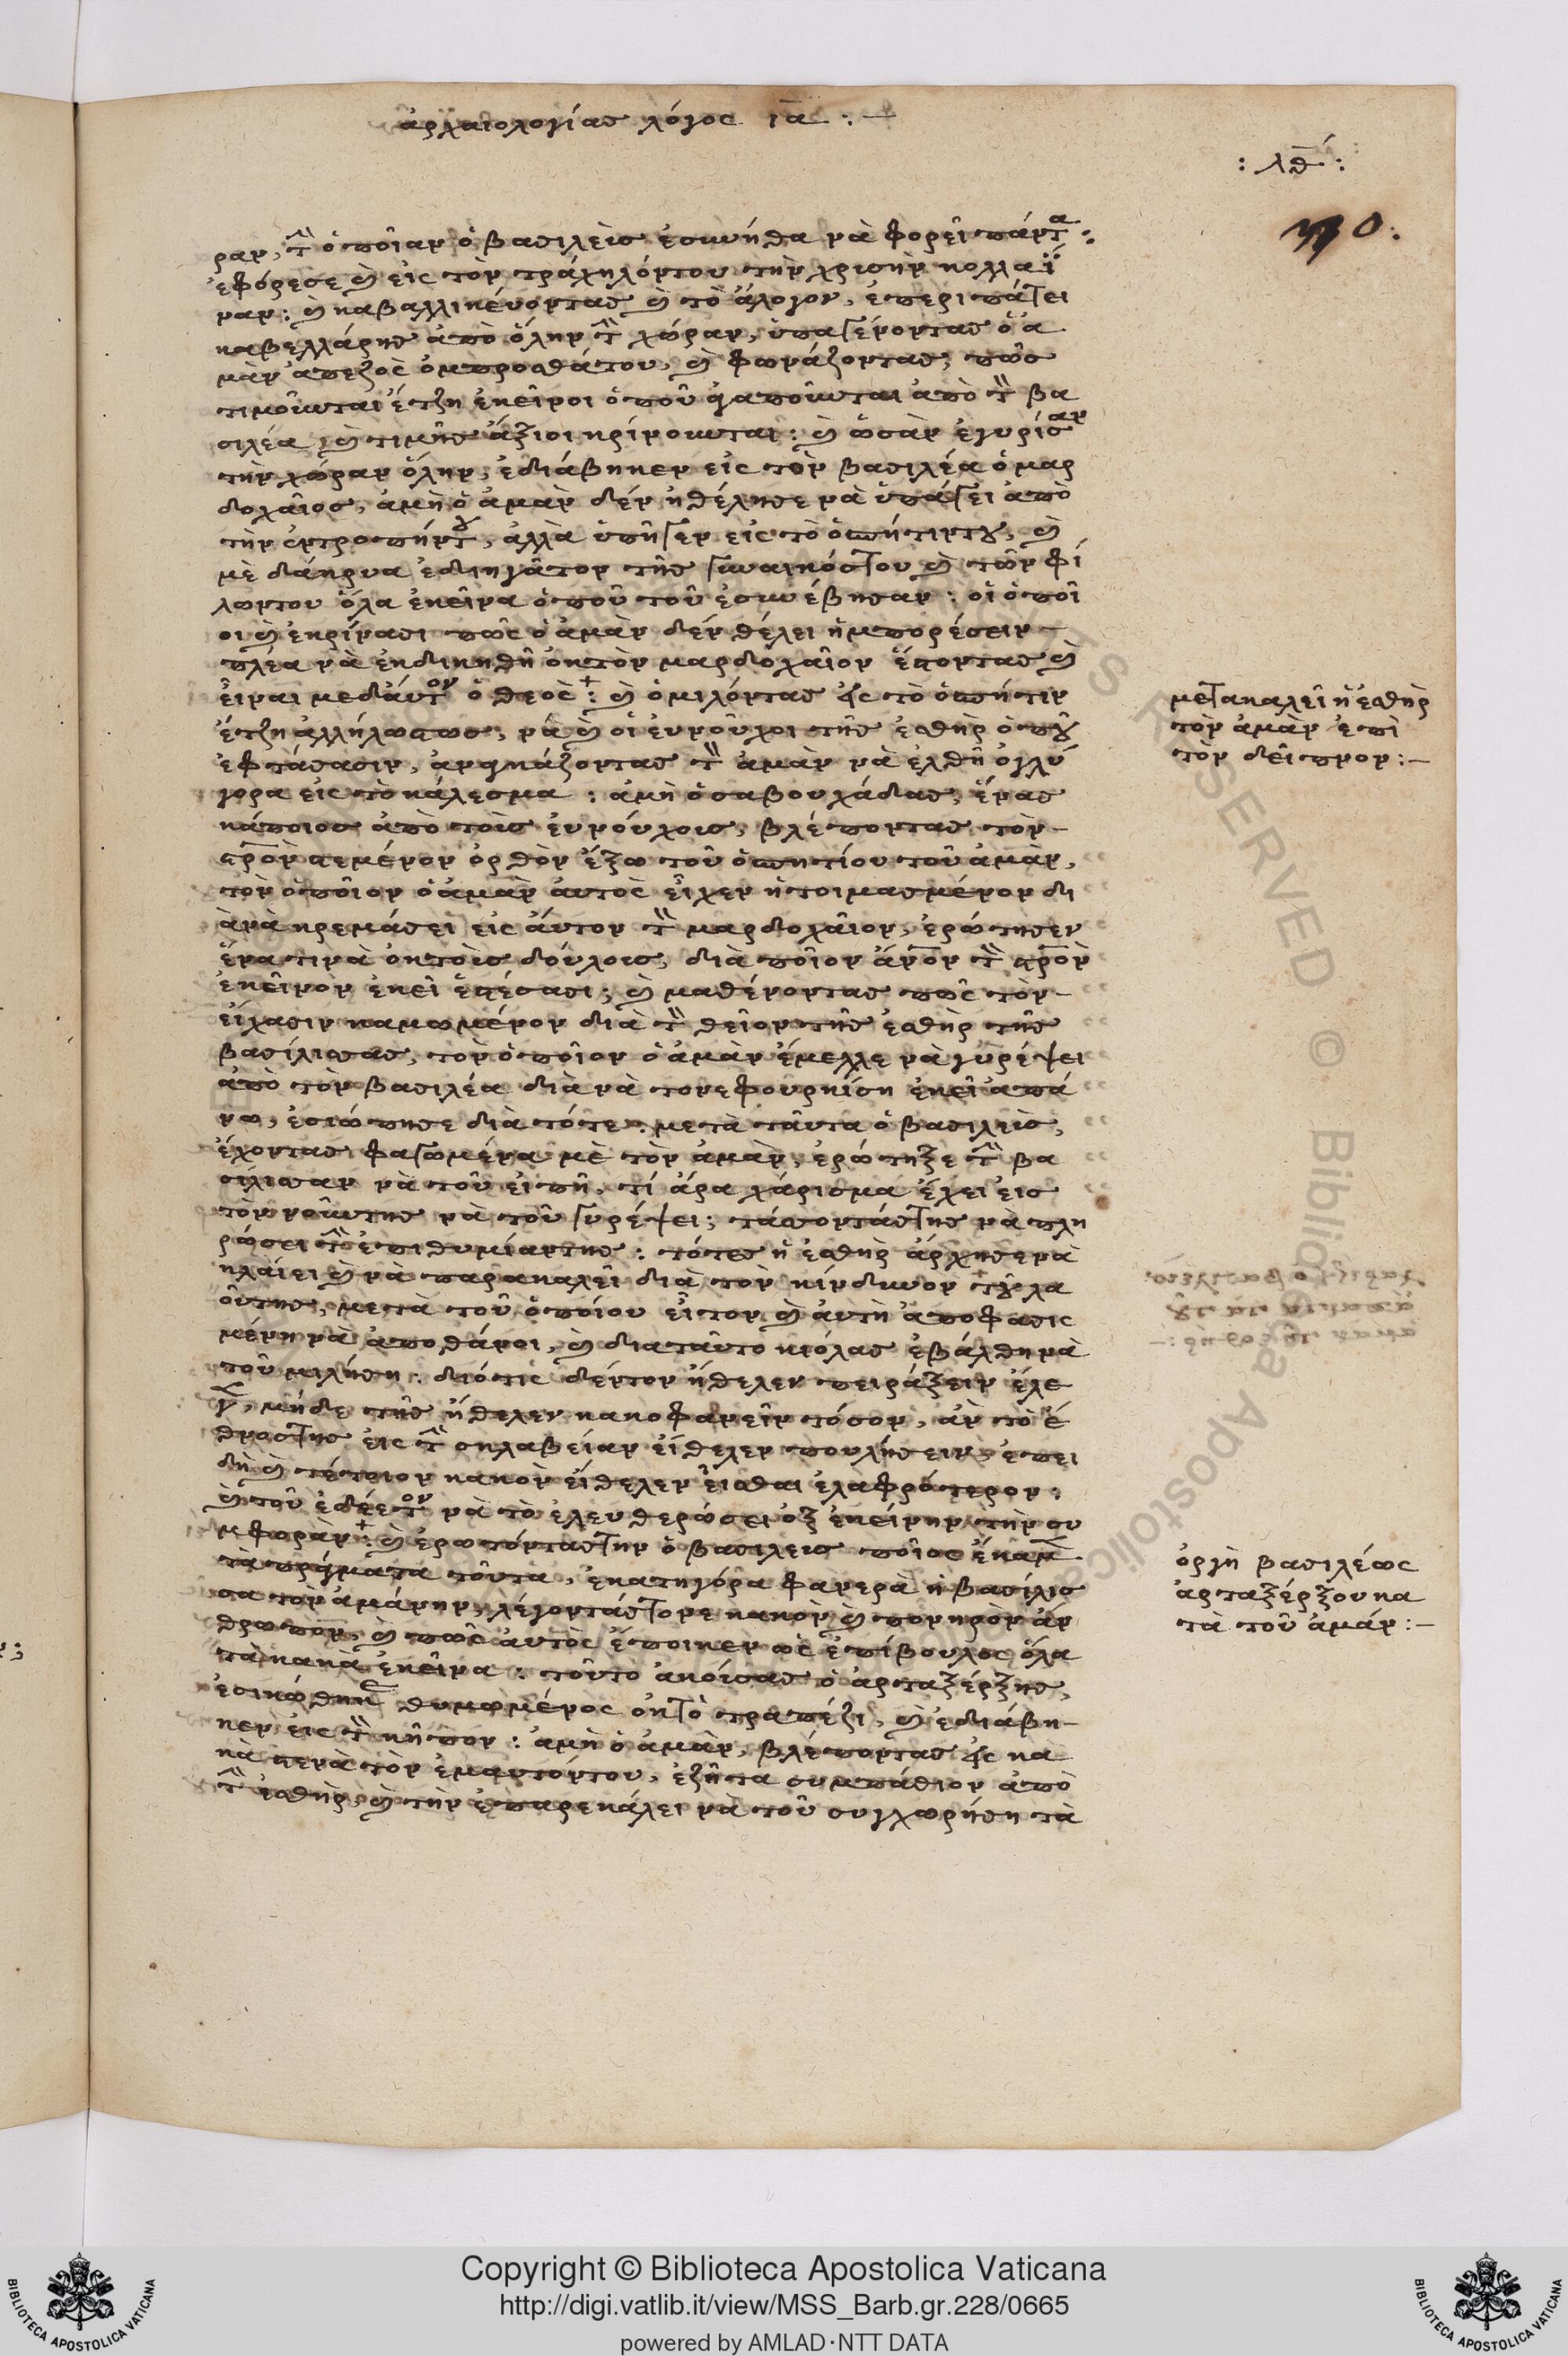 ἀρχαιολογίας λόγος ια :—
: λθ :
ραν, τὴν ὁποῖαν ὁ βασιλεὺς ἐσυνήθα νὰ φορεῖ πάντα :
ἐφόρεσε καὶ εἰς τὸν τράχηλόντου τὴν χρισὴν κολλαΐ
ναν : καὶ καβαλλικεύοντας καὶ τὸ ἄλογον, ἐπεριπάτει
καβελλάρης ἀπὸ ὅλην τὴν χώραν, ὑπαγένοντας ὁ ἀ
μὰν ἀπεζὸς ὀμπροσθάτου, καὶ φωνάζοντας, πῶς
τιμοῦνται ἔτζη ἐκεῖνοι ὁποῦ ἀγαποῦνται ἀπὸ τὸν βα
σιλέα καὶ τιμῆς ἄξιοι κρίνουνται : καὶ ὡσὰν ἐγυρίσαν
τὴν χώραν ὅλην, ἐδιάβηκεν εἰς τὸν βασιλέα ὁ μαρ
δοχαῖος, ἀμὴ ὁ ἀμὰν δὲν ἠθέλησε νὰ ὑπάγει ἀπὸ
τὴν ἐντροπήντου, ἀλλὰ ὑπῆγεν εἰς τὸ ὁσπήτιντου, καὶ
μὲ δάκρυα ἐδιηγᾶτον τῆς γυναικόστου καὶ τῶν φί
λωντου ὅλα ἐκεῖνα ὁποῦ τοῦ ἐσυνέβησαν : οἱ ὁποῖ
οι καὶ ἐκρίνασι πῶς ὁ ἀμὰν δὲν θέλει ἠμπορέσειν
πλέα νὰ ἐκδικηθῆ ὀκτὸν μαρδοχαῖον ἔστοντας καὶ
εἶναι μεδάυτον ὁ θεὸς : καὶ ὁμιλόντας εἰς τὸ ὁσπήτιν
ἔτζη ἀλλήλωστως, νά καὶ οἱ ἐυνοῦχοι τῆς ἐσθὴρ ὁποῦ
ἐφτάσασιν, ἀναγκάζοντας τὸν ἀμὰν νὰ ἐλθῆ ὀγλύ
γορα εἰς τὸ κάλεσμα : ἀμὴ ὁ σαβουχάδας, ἕνας
κάποιος ἀπὸ τοὺς ἐυνούχους, βλέποντας τὸν
σταυρὸν στεμένον ὀρθὸν ἔξω τοῦ ὁσπητίου τοῦ ἀμὰν,
τὸν ὁποῖον ὁ ἀμὰν ἀυτὸς εἶχεν ἠτοιμασμένον δι
ὰ νὰ κρεμάσει εἰς ἄυτον τὸν μαρδοχαῖον, ἐρώτησεν
ἕνα τινὰ ὀκτοὺς δούλους, διὰ ποῖον ἄνον τὸν σταυρὸν
ἐκεῖνον ἐκεῖ ἐστέσασι ; καὶ μαθένοντας πῶς τὸν
εἴχασιν καμωμένον διὰ τὸν θεῖον τῆς ἐσθὴρ τῆς
βασίλισσας, τὸν ὁποῖον ὁ ἀμὰν ἔμελλε νὰ γυρέψει
ἀπὸ τὸν βασιλέα διὰ νὰ τονεφουρκίση ἐκεῖ ἀπά
νω, ἐσιώπησε διὰ τότε : μετὰ ταῦτα ὁ βασιλεὺς,
ἔχοντας φαγωμένα μὲ τὸν ἀμὰν, ἐρώτηξε τὴν βα
σίλισσαν νὰ τοῦ εἰπῆ, τί ἄρα χάρισμα ἔχει εἰς
τὸν νοῦντης νὰ τοῦ γυρέψει ; τάσσοντάςτης νὰ πλη
ρώσει τὴν ἐπιθυμίαντης : τότες ἡ ἐσθὴρ ἄρχησε νὰ
κλαίει καὶ νὰ παρακαλεῖ διὰ τὸν κίνδυνον τοῦ λα
οῦντης, μετὰ τοῦ ὁποίου εἶτον καὶ ἀυτὴ ἀποφασις
μένη νὰ ἀποθάνει, καὶ διαταῦτο κιόλας ἐβάλθη νὰ
τοῦ μιλήση : διότις δέντον ἤθελεν πειράξειν ἔλε
γε, μήδε τῆς ἤθελεν κακοφανεῖν τόσον, ἂν τὸ ἔ
θνοςτης εἰς τὴν σκλαβείαν εἴθελεν πουλήσειν, ἐπει
δὴ καὶ τέτοιον κακὸν εἴθελεν εἶσθαι ἐλαφρότερον :
καὶ τοῦ ἐδέετον νὰ τὸ ἐλευθερώσει ὀξ ἐκείνην τὴν συ
μφορὰν : καὶ ἐρωτόντας την ὁ βασιλεὺς ποῖος ἔκαμε
τὰ πράγματα τοῦτα, ἐκατηγόρα φανερὰ ἡ βασίλισ
σα τὸν ἀμάνην, λέγοντάςτονε κακὸν καὶ πονηρὸν ἄν
θρωπον, καὶ πῶς ἀυτὸς ἔποικεν ὡς ἐπίβουλος ὅλα
τὰ κακὰ ἐκεῖνα : τοῦτο ἀκούσας ὁ ἀρταξέρξης,
ἐσικώθηκε θυμωμένος ὀκτὸ τραπέζι, καὶ ἐδιάβη
κεν εἰς τὸν κῆπον : ἀμὴ ὁ ἀμὰν, βλέποντας εἰς κα
κὰ στενὰ τὸν ἐμαυτόντου, ἐζῆτα συμπάθιον ἀπὸ
τὴν ἐσθὴρ, καὶ τὴν ἐπαρεκάλει νὰ τοῦ συγχωρήση τὰ
μετακαλεῖ ἡ ἐσθὴρ
τὸν ἀμὰν ἐπὶ
τὸν δεῖπνον :—
ὀργὴ βασιλέως
ἀρταξέρξου κα
τὰ τοῦ ἀμάν :—
RS R SERVED © Biblioteca Apostolica
Copyright © Biblioteca Apostolica Vaticana
http://digi.vatlib.it/view/MSS_Barb.gr.228/0665
powered by AMLAD·NTT DATA
BIBLIOTECA APOSTOLICA VATICANA
BIBLIOTECA APOSTOLICA VATICANA